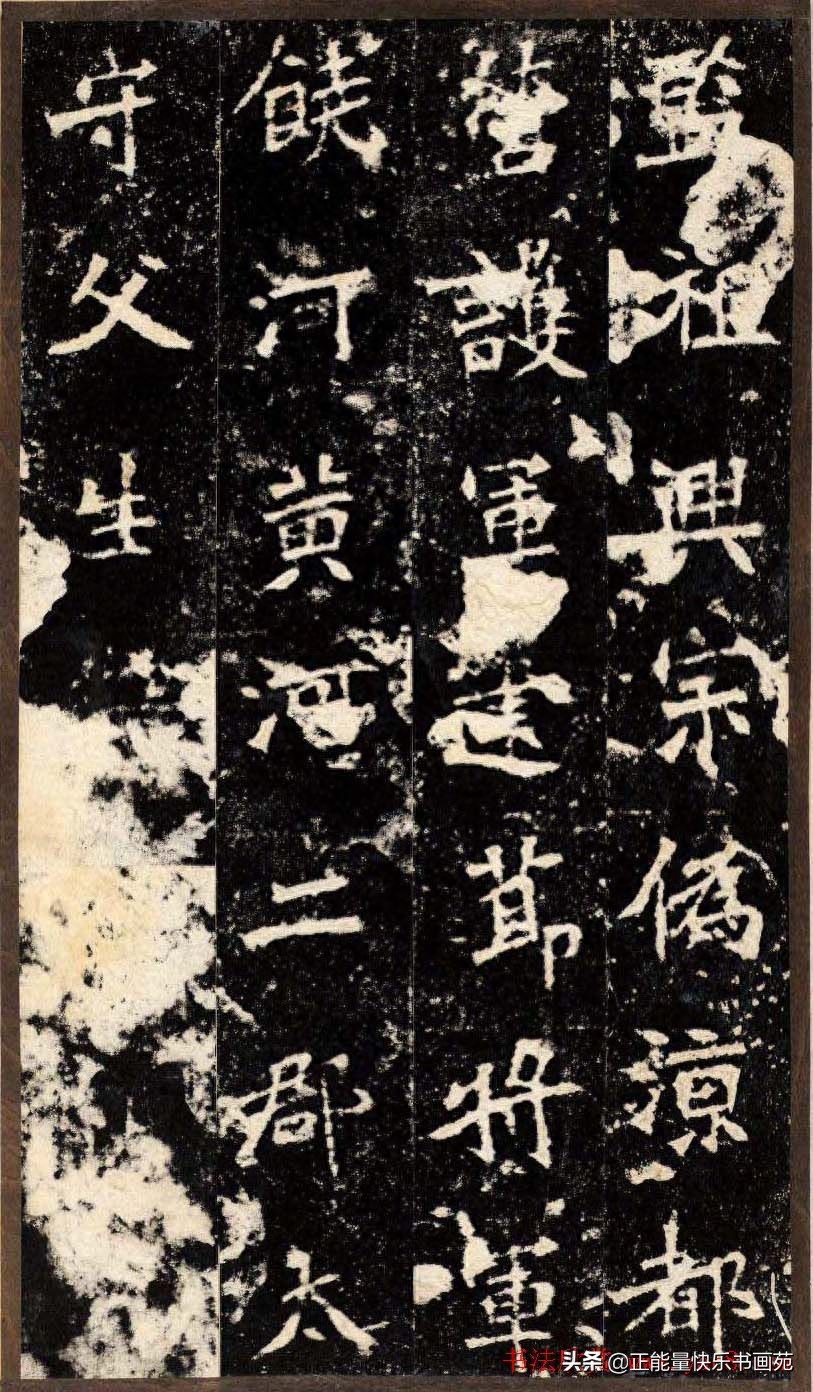 監祖興宗偽涼都
營護軍建節將軍
饒河黃河二郡太
守父生
书法
头条 @正能量快乐书画苑